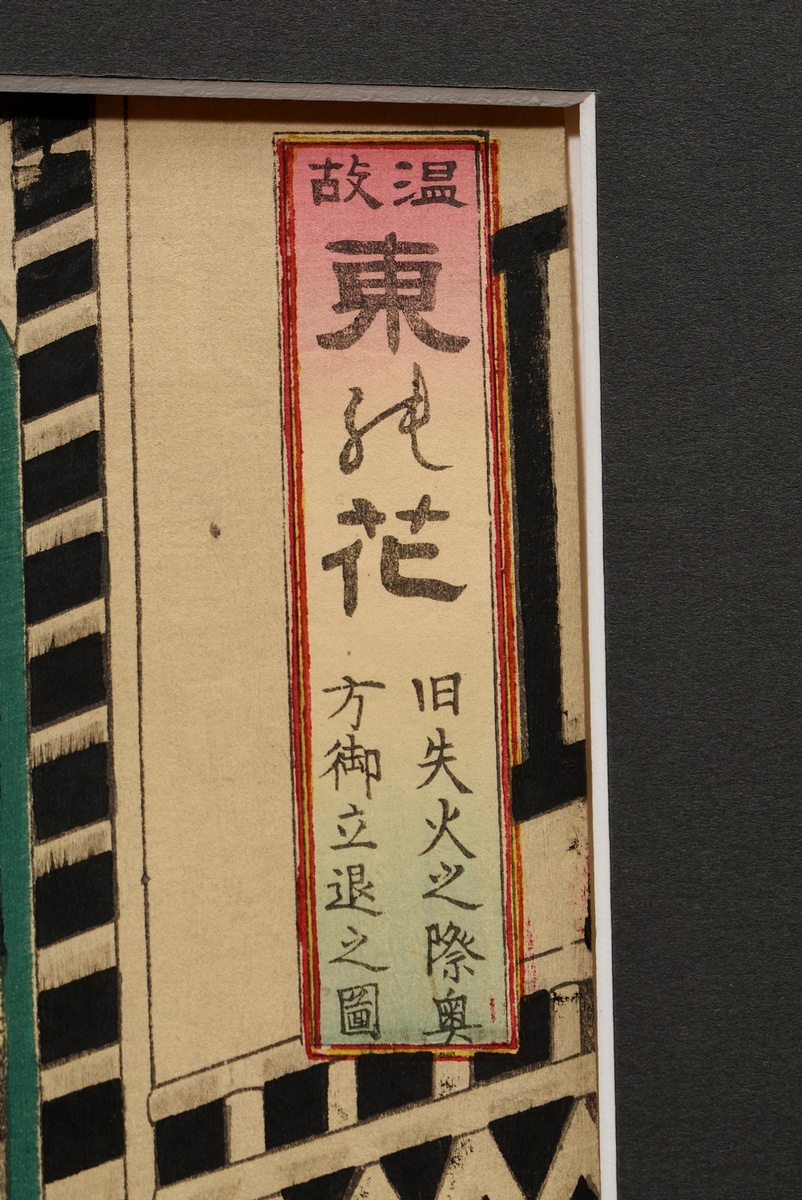 温故
東の花
旧失火之際奥
方御立退之圖